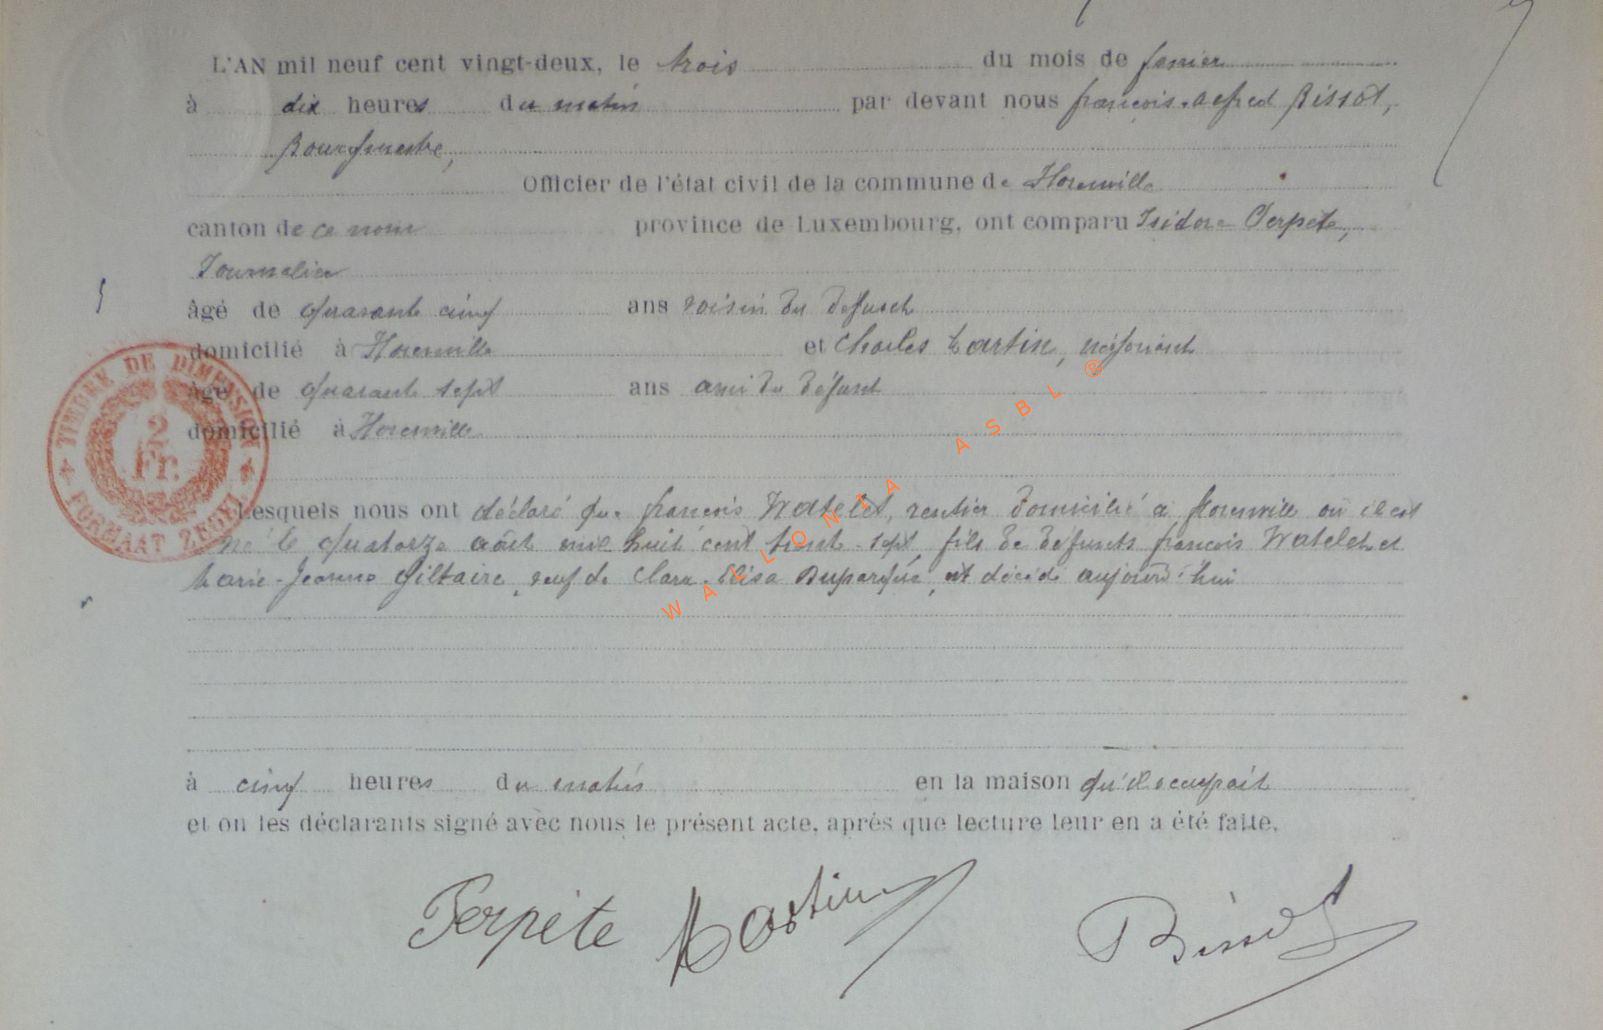 L'AN mil neuf cent vingt-deux, le trois du mois de janvier
à dix heures du matin par devant nous françois-Alfred Bissot,
Bourgmestre,
Officier de l'état civil de la commune de Florenville
canton de ce nom province de Luxembourg, ont comparu Isidore Perpète,
Journalier
âgé de quarante cinq ans voisin du défunt
domicilié à Florenville et Charles Martin, négociant
âgé de quarante sept ans ami du défunt
domicilié à Florenville
Lesquels nous ont déclaré que françois Watelet, rentier domicilié à florenville où il est
né le quatorze août mil huit cent trente-sept, fils de défunts françois Watelet et
Marie-Jeanne Giltaire, veuf de Clara-Elisa Duparque, est décédé aujourd'hui
à cinq heures du matin en la maison qu'il occupait
et on les déclarants signé avec nous le présent acte, après que lecture leur en a été faite.
Perpète Martin Bissot
TIMBRE DE DIMENSION
2 Fr.
FORMAAT ZEGEL
WALLONIA ASBL ®